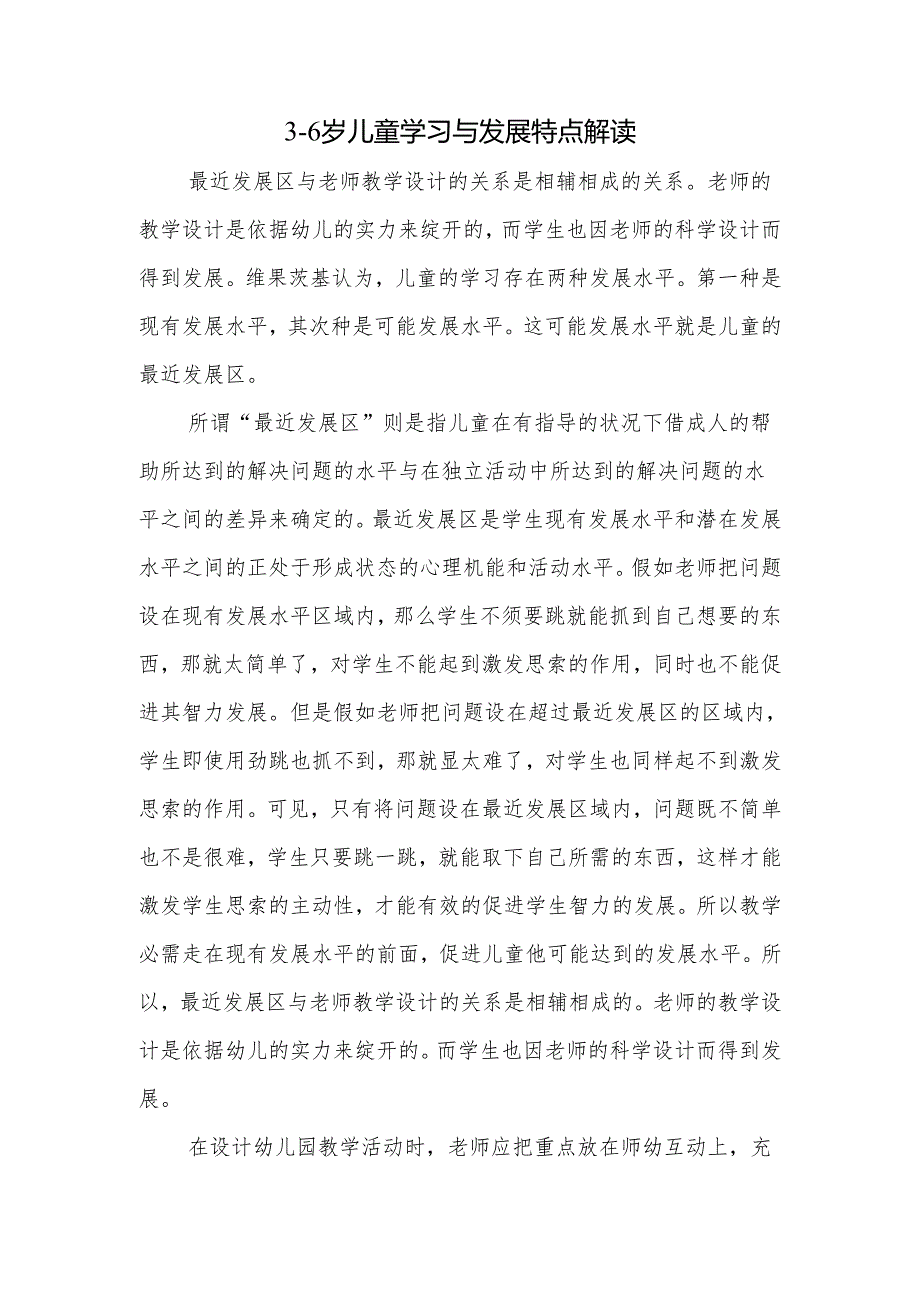 3-6岁儿童学习与发展特点解读
最近发展区与老师教学设计的关系是相辅相成的关系。老师的
教学设计是依据幼儿的实力来绽开的,而学生也因老师的科学设计而
得到发展。维果茨基认为,儿童的学习存在两种发展水平。第一种是
现有发展水平,其次种是可能发展水平。这可能发展水平就是儿童的
最近发展区。
所谓“最近发展区”则是指儿童在有指导的状况下借成人的帮
助所达到的解决问题的水平与在独立活动中所达到的解决问题的水
平之间的差异来确定的。最近发展区是学生现有发展水平和潜在发展
水平之间的正处于形成状态的心理机能和活动水平。假如老师把问题
设在现有发展水平区域内,那么学生不须要跳就能抓到自己想要的东
西,那就太简单了,对学生不能起到激发思索的作用,同时也不能促
进其智力发展。但是假如老师把问题设在超过最近发展区的区域内,
学生即使用劲跳也抓不到,那就显太难了,对学生也同样起不到激发
思索的作用。可见,只有将问题设在最近发展区域内,问题既不简单
也不是很难,学生只要跳一跳,就能取下自己所需的东西,这样才能
激发学生思索的主动性,才能有效的促进学生智力的发展。所以教学
必需走在现有发展水平的前面,促进儿童他可能达到的发展水平。所
以,最近发展区与老师教学设计的关系是相辅相成的。老师的教学设
计是依据幼儿的实力来绽开的。而学生也因老师的科学设计而得到发
展。
在设计幼儿园教学活动时,老师应把重点放在师幼互动上,充